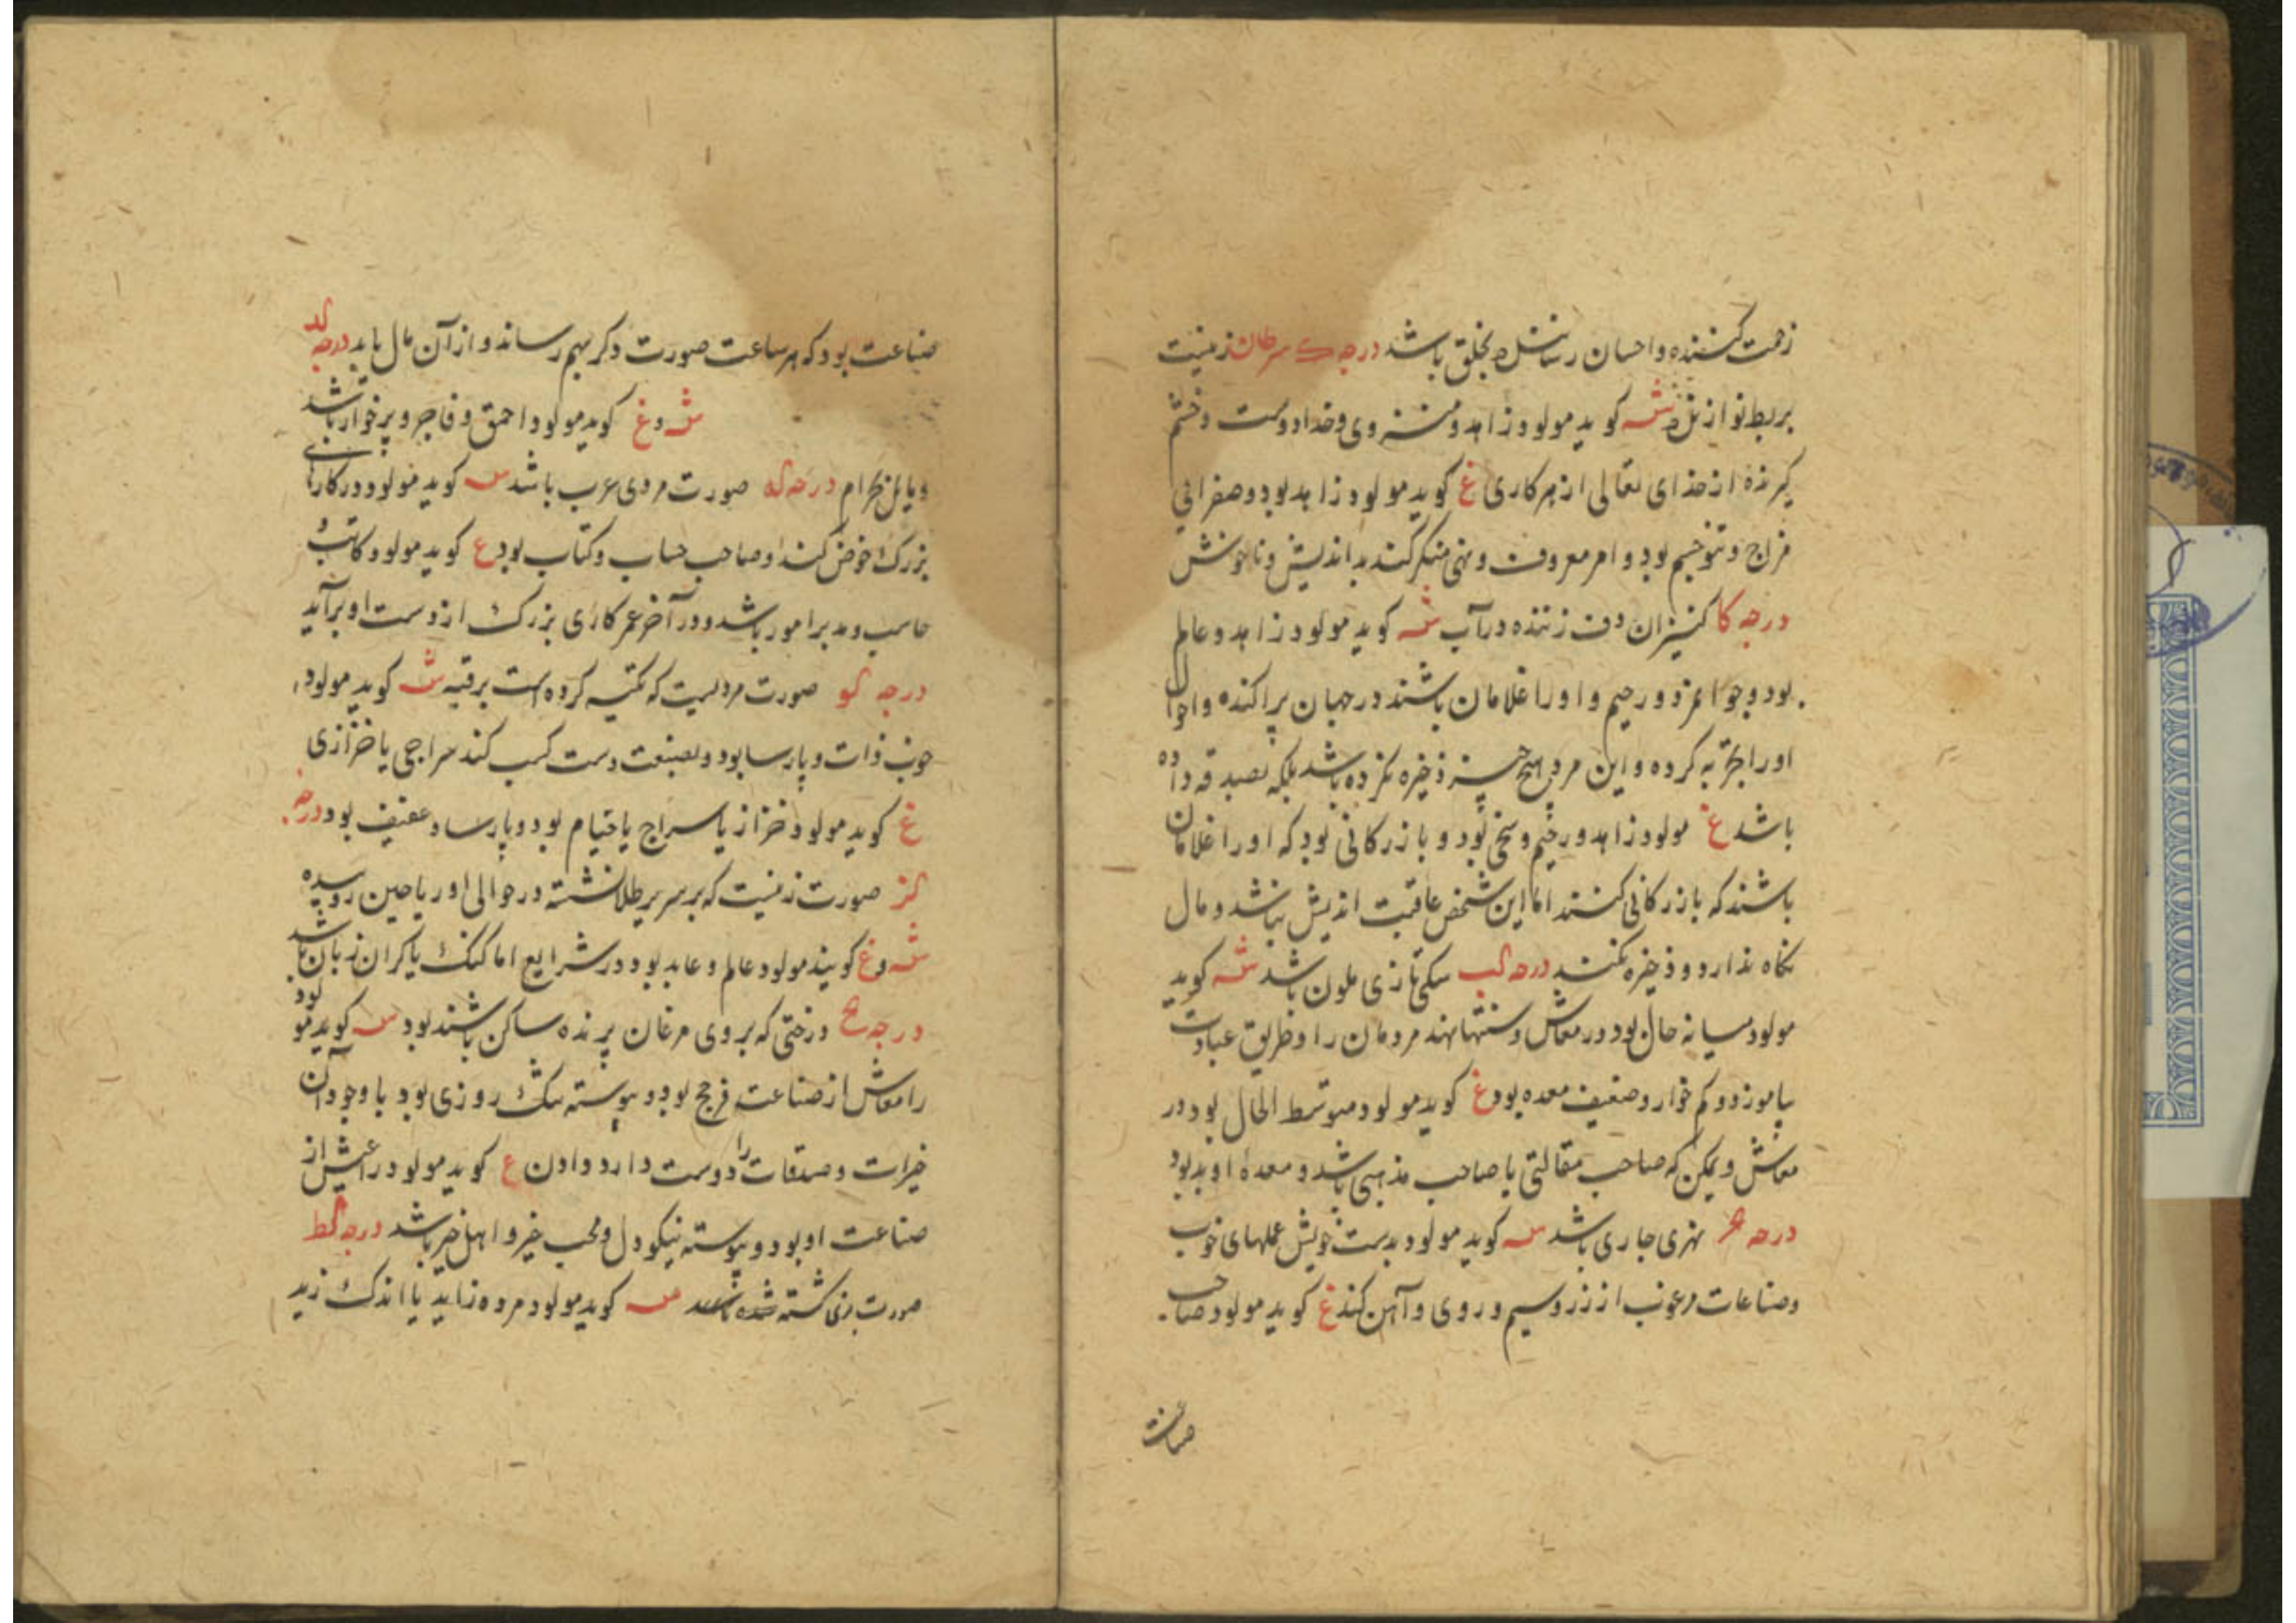 زحمت کشنده و احسان رساننده بخلق باشد درجه ک سرطان زنیست
بربط نواز ش کوید مولود زاهد و خدا دوست و خشم
کیرنده از خدای تعالی از هر کاری غ کوید مولود زاهد بود و صفرانی
مزاج و تنو جسم بود و امر معروف و نهی منکر کند بد اندیش و ناخوش
درجه کا کنیزان دف زننده در آب ش کوید مولود زاهد و عالم
بود و جوانمرد و رحیم و او را غلامان باشند در جهان پراکنده و احوال
او را تجربه کرده و این مرد هیچ چیز ذخیره نکرده باشد بلکه بصدقه داده
باشد غ مولود زاهد و رحیم و سخی بود و بازرکانی بود که او را غلامان
باشند که بازرکانی کنند اما این شخص عاقبت اندیش نباشد و مال
نکاه ندارد و ذخیره نکند درجه کب سکی تازی ملون باشد ش کوید
مولود میانه حال بود در معاش و سنتها نهد مردمان را و طریق عبادت
بیاموزد و کم خوار و ضعیف معده بود غ کوید مولود متوسط الحال بود در
معاش و یمکن که صاحب مقالتی یا صاحب مذهبی باشد و معدهٔ او بد بود
درجه کج نهری جاری باشد ش کوید مولود بدست خویش عملهای خوب
و صناعات مرغوب از زر و سیم و روی و آهن کند غ کوید مولود صاحب
صناعت
صناعت بود که هر ساعت صورت دکر بهم رساند و از آن مال یابد درجه کد
ش و غ کوید مولود احمق و فاجر و پرخوار باشد
و مایل بحرام درجه که صورت مردی عرب باشد ش کوید مولود در کارهای
بزرک خوض کند و صاحب حساب و کتاب بود غ کوید مولود کاتب و
حاسب و مدبر امور باشد و در آخر عمر کاری بزرک از دست او برآید
درجه کو صورت مردیست که تکیه کرده است برقبه ش کوید مولود
خوب ذات و پارسا بود و بصنعت دست کسب کند سراجی یا خرازی
غ کوید مولود خراز یا سراج یا خیام بود و پارسا و عفیف بود درجه
کز صورت زنیست که بر سریر طلا نشسته در حوالی او ریاحین روییده
ش و غ کویند مولود عالم و عابد بود در شرایع اما کنک یا کران زبان باشد
درجه کح درختی که بر وی مرغان پرنده ساکن باشند بود ش کوید مولود
را معاش از صناعت فرج بود و پیوسته تنک روزی بود با وجود آن
خیرات و صدقات را دوست دارد دادن غ کوید مولود را عیش از
صناعت او بود و پیوسته نیکو دل و محب خیر و اهل خیر باشد درجه کط
صورت مردی کشته شده باشد ش کوید مولود مرده زاید یا اندک زید